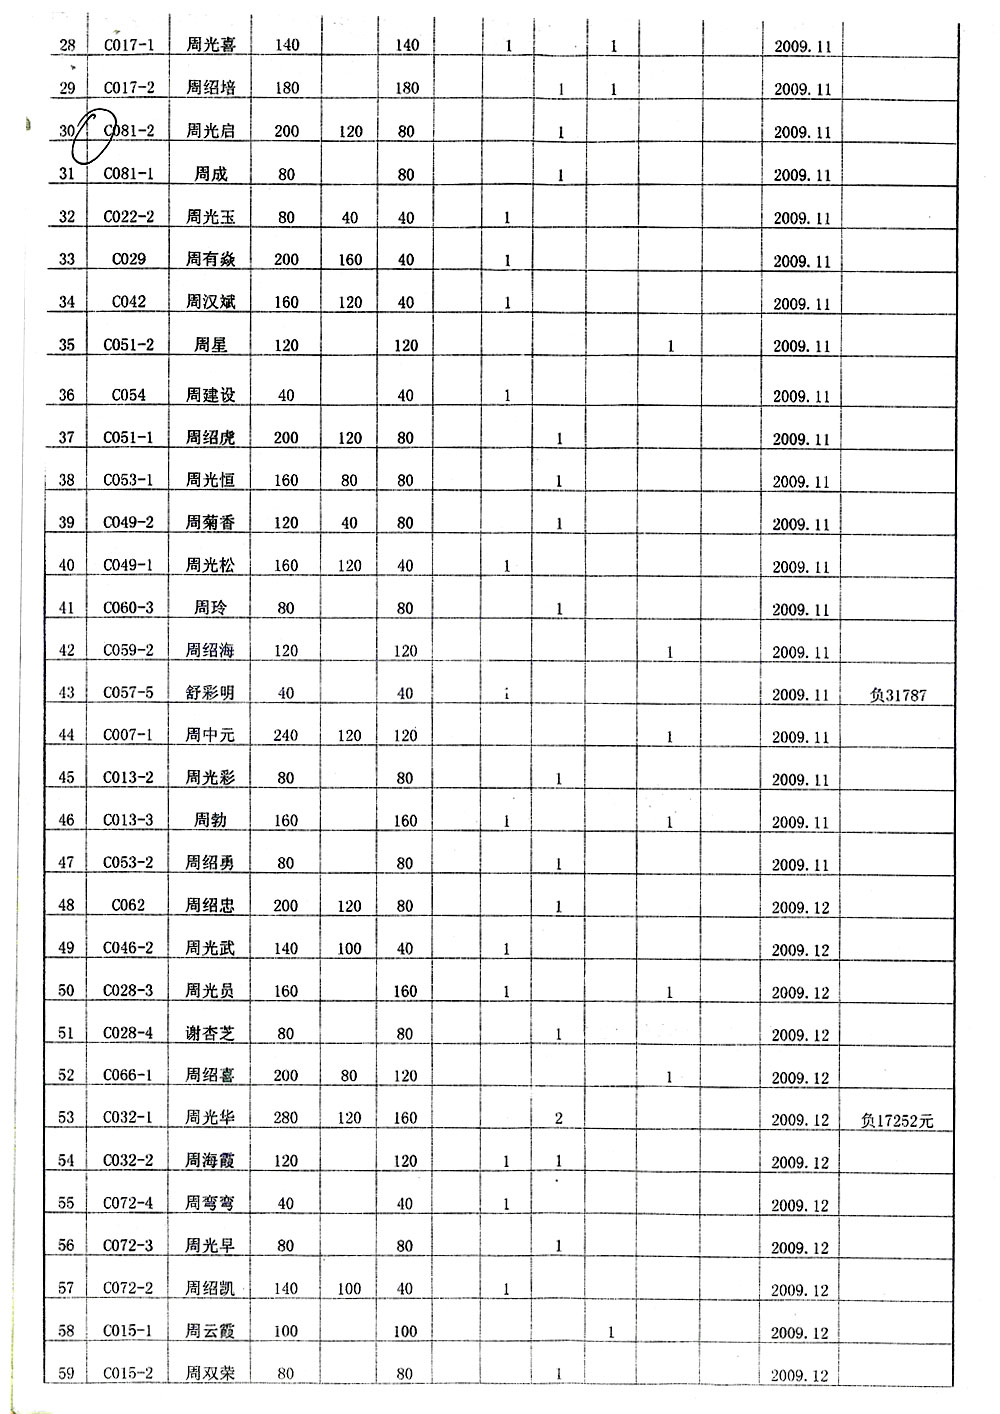 28 C017-1 周光喜 140 140 1 1 2009.11
29 C017-2 周绍培 180 180 1 1 2009.11
30 C081-2 周光启 200 120 80 1 2009.11
31 C081-1 周成 80 80 1 2009.11
32 C022-2 周光玉 80 40 40 1 2009.11
33 C029 周有焱 200 160 40 1 2009.11
34 C042 周汉斌 160 120 40 1 2009.11
35 C051-2 周星 120 120 1 2009.11
36 C054 周建设 40 40 1 2009.11
37 C051-1 周绍虎 200 120 80 1 2009.11
38 C053-1 周光恒 160 80 80 1 2009.11
39 C049-2 周菊香 120 40 80 1 2009.11
40 C049-1 周光松 160 120 40 1 2009.11
41 C060-3 周玲 80 80 1 2009.11
42 C059-2 周绍海 120 120 1 2009.11
43 C057-5 舒彩明 40 40 1 2009.11 负31787
44 C007-1 周中元 240 120 120 1 2009.11
45 C013-2 周光彩 80 80 1 2009.11
46 C013-3 周勃 160 160 1 1 2009.11
47 C053-2 周绍勇 80 80 1 2009.11
48 C062 周绍忠 200 120 80 1 2009.12
49 C046-2 周光武 140 100 40 1 2009.12
50 C028-3 周光员 160 160 1 1 2009.12
51 C028-4 谢杏芝 80 80 1 2009.12
52 C066-1 周绍喜 200 80 120 1 2009.12
53 C032-1 周光华 280 120 160 2 2009.12 负17252元
54 C032-2 周海霞 120 120 1 1 2009.12
55 C072-4 周弯弯 40 40 1 2009.12
56 C072-3 周光早 80 80 1 2009.12
57 C072-2 周绍凯 140 100 40 1 2009.12
58 C015-1 周云霞 100 100 1 2009.12
59 C015-2 周双荣 80 80 1 2009.12